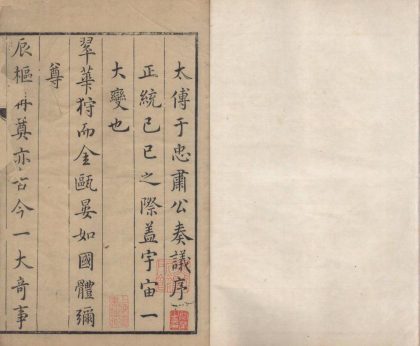 太傅于忠肅公奏議序
正統己巳之際盖宇宙一
大變也
翠華狩而金甌晏如國體彌
尊
辰樞再奠亦古今一大奇事